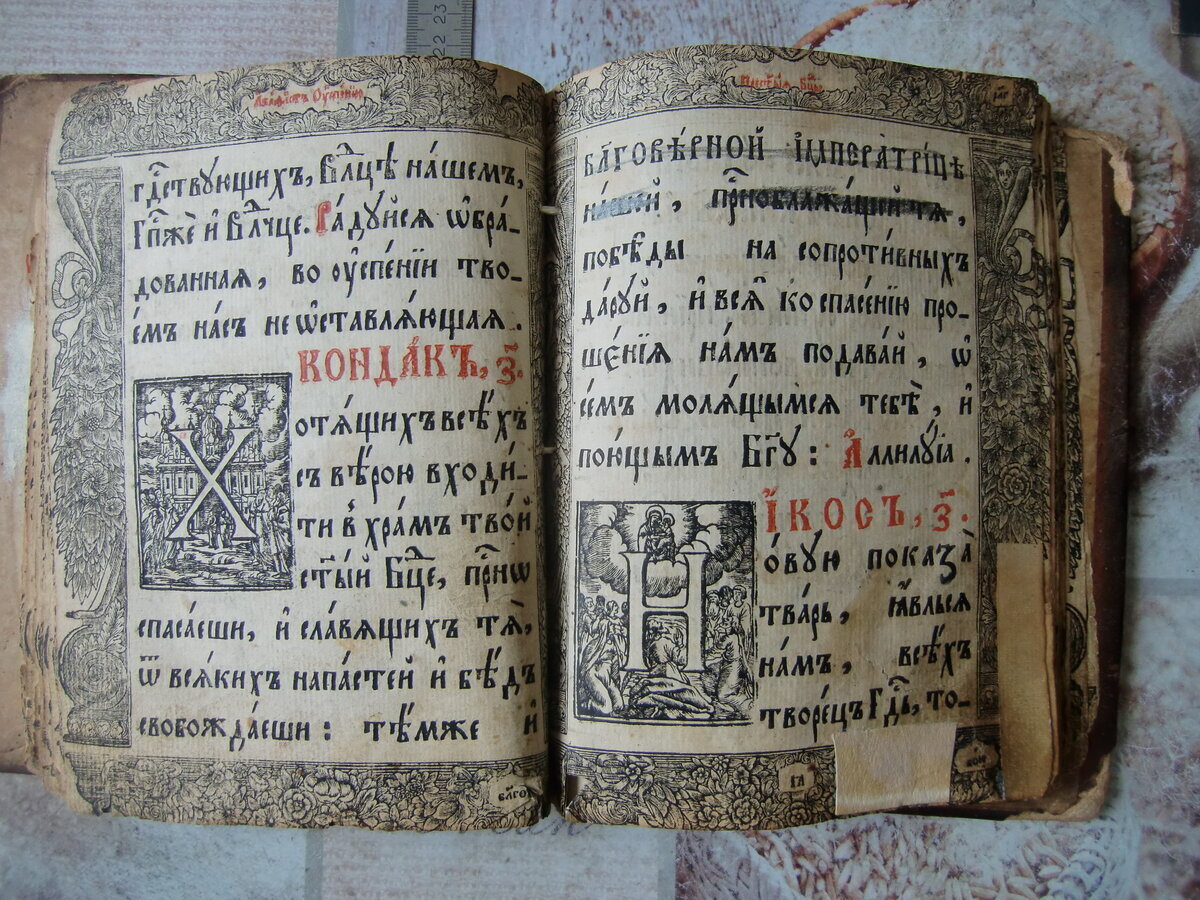 Акаѳистъ Оуспенїю
гдⷭ҇твꙋющихъ, Влⷣцѣ на́шемъ,
Гпⷭ҇жѐ и҆ Влⷣчце. Ра́дꙋйсѧ ѡ҆бра́-
дованнаѧ, во оу҆спе́нїи тво-
е́мъ на́съ не ѡ҆ставлѧ́ющаѧ.
КОНДА́КЪ, з҃.
Хотѧ́щихъ всѣ́хъ
съ вѣ́рою входи́-
ти в̾ хра́мъ тво́й
ст҃ы́й Бцⷣе, прⷭ҇нѡ
спаса́еши, и҆ сла́вѧщихъ тѧ̀,
ѿ всѧ́кихъ напа́стей и҆ бѣ́дъ
свобожда́еши: тѣ́мже и҆
бл҃го
Прест҃ы́ѧ Бцⷣы
БЛ҃ГОВѢ́РНОЙ І҆МПЕРАТРІ́ЦѢ
на́шей, прⷭ҇ноблажа́щей тѧ̀,
побѣ́ды на сопроти́вныхъ
да́рꙋй, и҆ всѧ̑ ко спасе́нїю про-
ше́нїѧ на́мъ подава́й, ѡ҆
се́мъ молѧ́щымсѧ тебѣ̀, и҆
пою́щымъ Бг҃ꙋ: А҆ллилꙋ́їа.
І҆́КОСЪ, з҃.
Но́вꙋю показа̀
тва́рь, ꙗ҆́вльсѧ
на́мъ, всѣ́хъ
творе́цъ Гдⷭ҇ь, то-